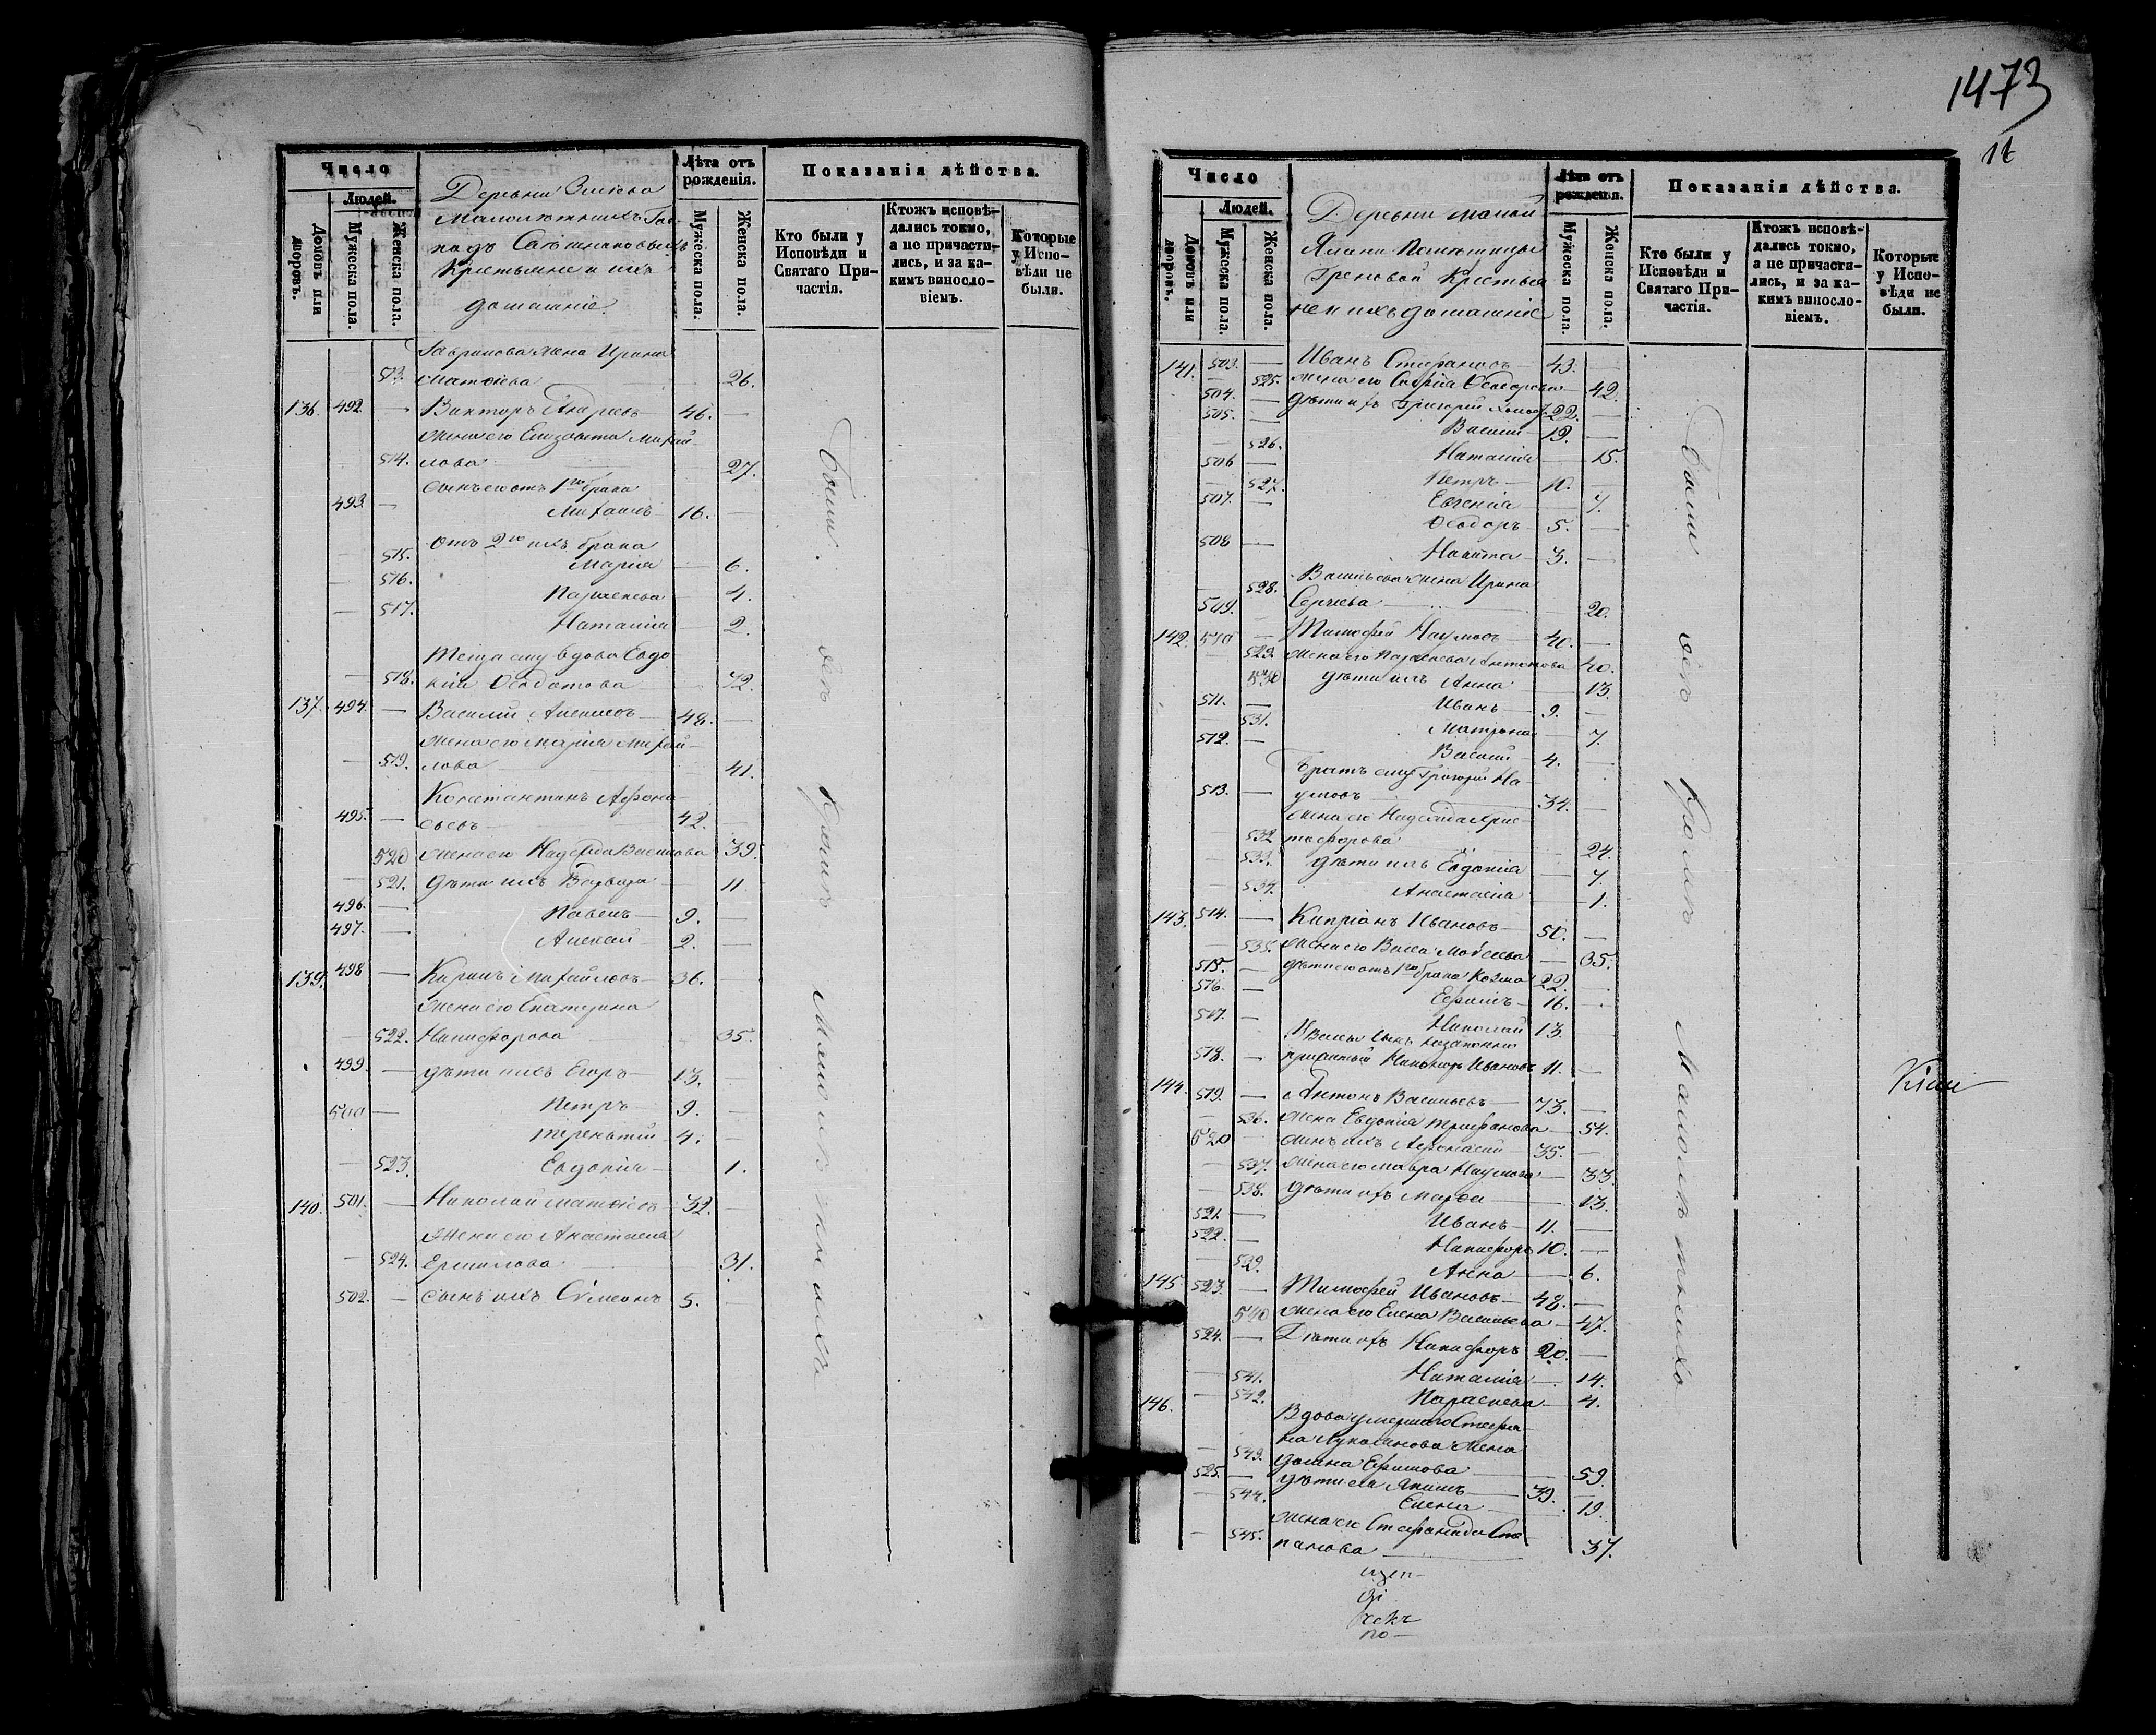 1473
Число
Людей.
Домовъ или дворовъ.
Мужеска пола.
Женска пола.
Деревни
Малолѣтнихъ Гос-
подъ
Крестьяне и ихъ
домашніе.
Лѣта отъ рожденія.
Мужеска пола.
Женска пола.
Показанія дѣйства.
Кто были у Исповѣди и Святаго Причастія.
Ктожъ исповѣдались токмо, а не причастились, и за какимъ винословіемъ.
Которые у Исповѣди не были.
Гаврилова жена Ирина
513. Матѳіева — 26.
136. 492. — Викторъ Андреевъ — 46. —
жена его Елизавета Михай-
514. лова 27.
сынъ его отъ 1го брака
493. — Михаилъ — 16. —
Отъ 2го ихъ брака
515. Марія — 6.
516. Параскева — 4.
517. Наталія — 2.
Теща ему вдова Евдо
518. кія Ѳеодотова 72.
137. 494. — Василій Алексіевъ — 48. —
жена его Марія Михай-
519. лова 41.
Константинъ Афона
495. — сьевъ — 42. —
520 жена его Надежда Васильева 39.
521. дѣти ихъ Варвара — 11.
496. — Павелъ — 9. —
497. — Алексѣй — 2. —
139. 498 — Кирилъ Михайловъ — 36. —
жена его Екатерина
522. Никифорова 35.
499. — дѣти ихъ Егоръ — 13. —
500 — Петръ — 9. —
Терентій — 4. —
523. Евдокія — 1.
140. 501. — Николай Матѳіевъ — 32. —
жена его Анастасія
524. Ермилова 31.
502. — сынъ ихъ Сѵмеонъ 5.
были. всѣ кромѣ малолѣтнихъ
Число
Людей.
Домовъ или дворовъ.
Мужеска пола.
Женска пола.
Деревни малой
Помѣщицы
Крестья
не и ихъ домашніе
Лѣта отъ рожденія.
Мужеска пола.
Женска пола.
Показанія дѣйства.
Кто были у Исповѣди и Святаго Причастія.
Ктожъ исповѣдались токмо, а не причастились, и за какимъ винословіемъ.
Которые у Исповѣди не были.
141. 503. — Иванъ Стефановъ — 43. —
525. жена его Софія Ѳеодорова — 42.
504. — дѣти ихъ Григорій 22. —
505. — Василій — 19. —
526. Наталія — 15.
506 — Петръ — 10. —
527. Евгенія — 7.
507. — Ѳеодоръ — 5. —
508 — Никита — 3. —
Васильева жена Ирина
528. Сергіева 20.
509.
142. 510 — Тимофей Наумовъ — 40. —
529. жена его Параскева Антонова 40.
530 дѣти ихъ Анна — 13.
511. — Иванъ — 9. —
531. Матрона — 7.
512. — Василій — 4. —
Братъ ему Григорій На-
513. — умовъ 34. —
жена его Надежда Хрис-
532 тофорова 24.
533. дѣти ихъ Евдокія — 7.
534. Анастасія — 1.
143. 514. — Кипріанъ Ивановъ — 50. —
535. жена его Васса Моѵсеева — 35.
515. — дѣти его отъ 1го брака Козма 22. —
516. — Ефимъ — 16. —
517. — Николай 13. —
У Вассы сынъ незаконно
518. — прижитый Никаноръ Ивановъ 11. —
144. 519. — Антонъ Васильевъ — 73. —
536. жена Евдокія Трифонова — 54.
520 — сынъ ихъ Афонасій — 35. —
537. жена его Мавра Наумова — 33.
538. дѣти ихъ Марѳа — 13.
521. — Иванъ — 11. —
522. — Никифоръ 10. —
539. Анна — 6.
145. 523. — Тимофей Ивановъ — 48. —
540 жена его Елена Васильева — 47.
524. — Дѣти ихъ Никифоръ 20. —
541. Наталія — 14.
542. Параскева — 4.
146. Вдова умершаго Стефа-
на Лукьянова жена
543. Ефимова 59.
525. — дѣти ея Якимъ — 39. —
544. Елена — 19.
жена его Стефанида Сте
545. панова — 37.
были всѣ кромѣ малолѣтнихъ